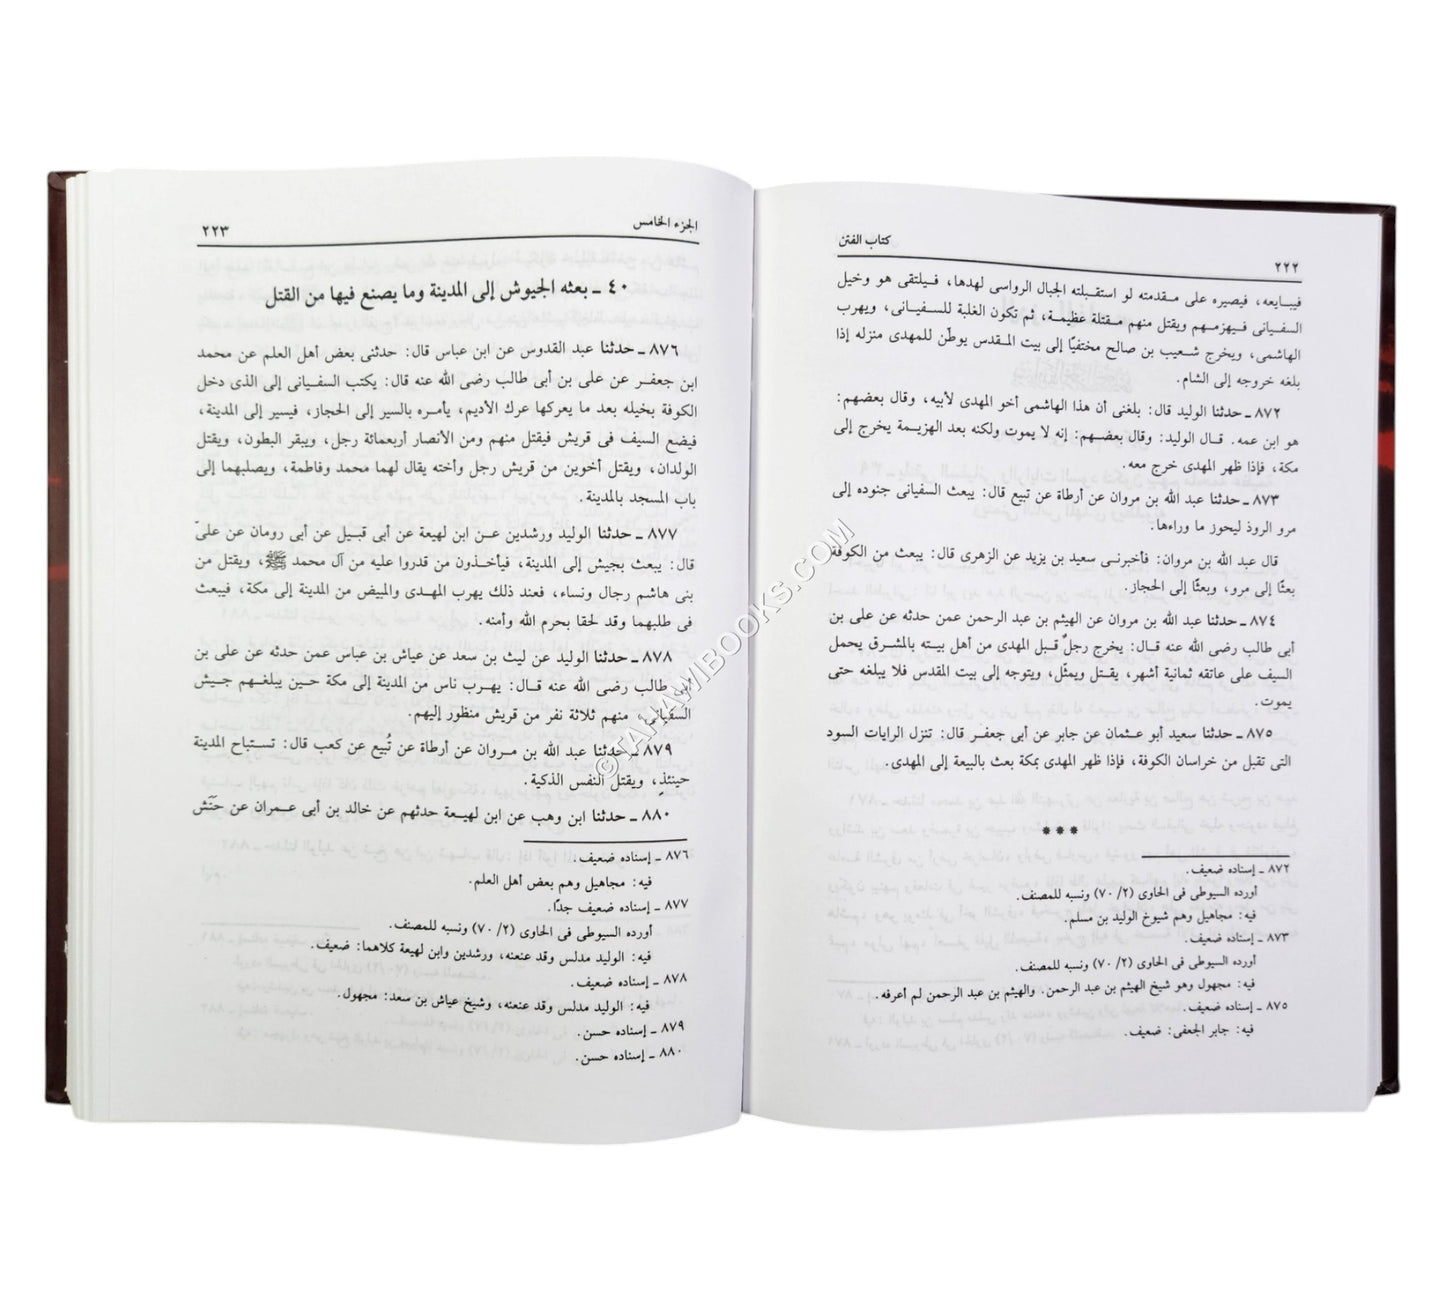 ٢٢٢
كتاب الفتن
فيبايعه، فيصيره على مقدمته لو استقبلته الجبال الرواسى لهدها، فيلتقى هو وخيل
السفيانى فيهزمهم ويقتل منهم مقتلة عظيمة، ثم تكون الغلبة للسفيانى، ويهرب
الهاشمى، ويخرج شعيب بن صالح مختفيًا إلى بيت المقدس يوطّن للمهدى منزله إذا
بلغه خروجه إلى الشام.
٨٧٢ ـ حدثنا الوليد قال: بلغنى أن هذا الهاشمى أخو المهدى لأبيه، وقال بعضهم:
هو ابن عمه. قال الوليد: وقال بعضهم: إنه لا يموت ولكنه بعد الهزيمة يخرج إلى
مكة، فإذا ظهر المهدى خرج معه.
٨٧٣ ـ حدثنا عبد الله بن مروان عن أرطاة عن تبيع قال: يبعث السفيانى جنوده إلى
مرو الروذ ليحوز ما وراءها.
قال عبد الله بن مروان: فأخبرنى سعيد بن يزيد عن الزهرى قال: يبعث من الكوفة
بعثًا إلى مرو، وبعثًا إلى الحجاز.
٨٧٤ ـ حدثنا عبد الله بن مروان عن الهيثم بن عبد الرحمن عمن حدثه عن على بن
أبى طالب رضى الله عنه قال: يخرج رجلٌ قبل المهدى من أهل بيته بالمشرق يحمل
السيف على عاتقه ثمانية أشهر، يقتل ويمثّل، ويتوجه إلى بيت المقدس فلا يبلغه حتى
يموت.
٨٧٥ ـ حدثنا سعيد أبو عثمان عن جابر عن أبى جعفر قال: تنزل الرايات السود
التى تقبل من خراسان الكوفة، فإذا ظهر المهدى بمكة بعث بالبيعة إلى المهدى.
***
٨٧٢ ـ إسناده ضعيف.
أورده السيوطى فى الحاوى (٢/ ٧٠) ونسبه للمصنف.
فيه: مجاهيل وهم شيوخ الوليد بن مسلم.
٨٧٣ ـ إسناده ضعيف.
أورده السيوطى فى الحاوى (٢/ ٧٠) ونسبه للمصنف.
فيه: مجهول وهو شيخ الهيثم بن عبد الرحمن. والهيثم بن عبد الرحمن لم أعرفه.
٨٧٥ ـ إسناده ضعيف.
فيه: جابر الجعفى: ضعيف.
الجزء الخامس
٢٢٣
٤٠ ـ بعثه الجيوش إلى المدينة وما يصنع فيها من القتل
٨٧٦ ـ حدثنا عبد القدوس عن ابن عباس قال: حدثنى بعض أهل العلم عن محمد
ابن جعفر عن على بن أبى طالب رضى الله عنه قال: يكتب السفيانى إلى الذى دخل
الكوفة بخيله بعد ما يعركها عرك الأديم، يأمره بالسير إلى الحجاز، فيسير إلى المدينة،
فيضع السيف فى قريش فيقتل منهم ومن الأنصار أربعمائة رجل، ويبقر البطون، ويقتل
الولدان، ويقتل أخوين من قريش رجل وأخته يقال لهما محمد وفاطمة، ويصلبهما إلى
باب المسجد بالمدينة.
٨٧٧ ـ حدثنا الوليد ورشدين عن ابن لهيعة عن أبى قبيل عن أبى رومان عن علىّ
قال: يبعث بجيش إلى المدينة، فيأخذون من قدروا عليه من آل محمد ﷺ، ويقتل من
بنى هاشم رجال ونساء، فعند ذلك يهرب المهدى والمبيض من المدينة إلى مكة، فيبعث
فى طلبهما وقد لحقا بحرم الله وأمنه.
٨٧٨ ـ حدثنا الوليد عن ليث بن سعد عن عياش بن عباس عمن حدثه عن على بن
أبى طالب رضى الله عنه قال: يهرب ناس من المدينة إلى مكة حين يبلغهم جيش
السفيانى، منهم ثلاثة نفر من قريش منظور إليهم.
٨٧٩ ـ حدثنا عبد الله بن مروان عن أرطاة عن تُبيع عن كعب قال: تستباح المدينة
حينئذٍ، ويقتل النفس الذكية.
٨٨٠ ـ حدثنا ابن وهب عن ابن لهيعة حدثهم عن خالد بن أبى عمران عن حَنَش
٨٧٦ ـ إسناده ضعيف:
فيه: مجاهيل وهم بعض أهل العلم.
٨٧٧ ـ إسناده ضعيف جدًا.
أورده السيوطى فى الحاوى (٢/ ٧٠) ونسبه للمصنف.
فيه: الوليد مدلس وقد عنعنه، ورشدين وابن لهيعة كلاهما: ضعيف.
٨٧٨ ـ إسناده ضعيف.
فيه: الوليد مدلس وقد عنعنه، وشيخ عياش بن سعد: مجهول.
٨٧٩ ـ إسناده حسن.
٨٨٠ ـ إسناده حسن.
© TAHAWIBOOKS.COM